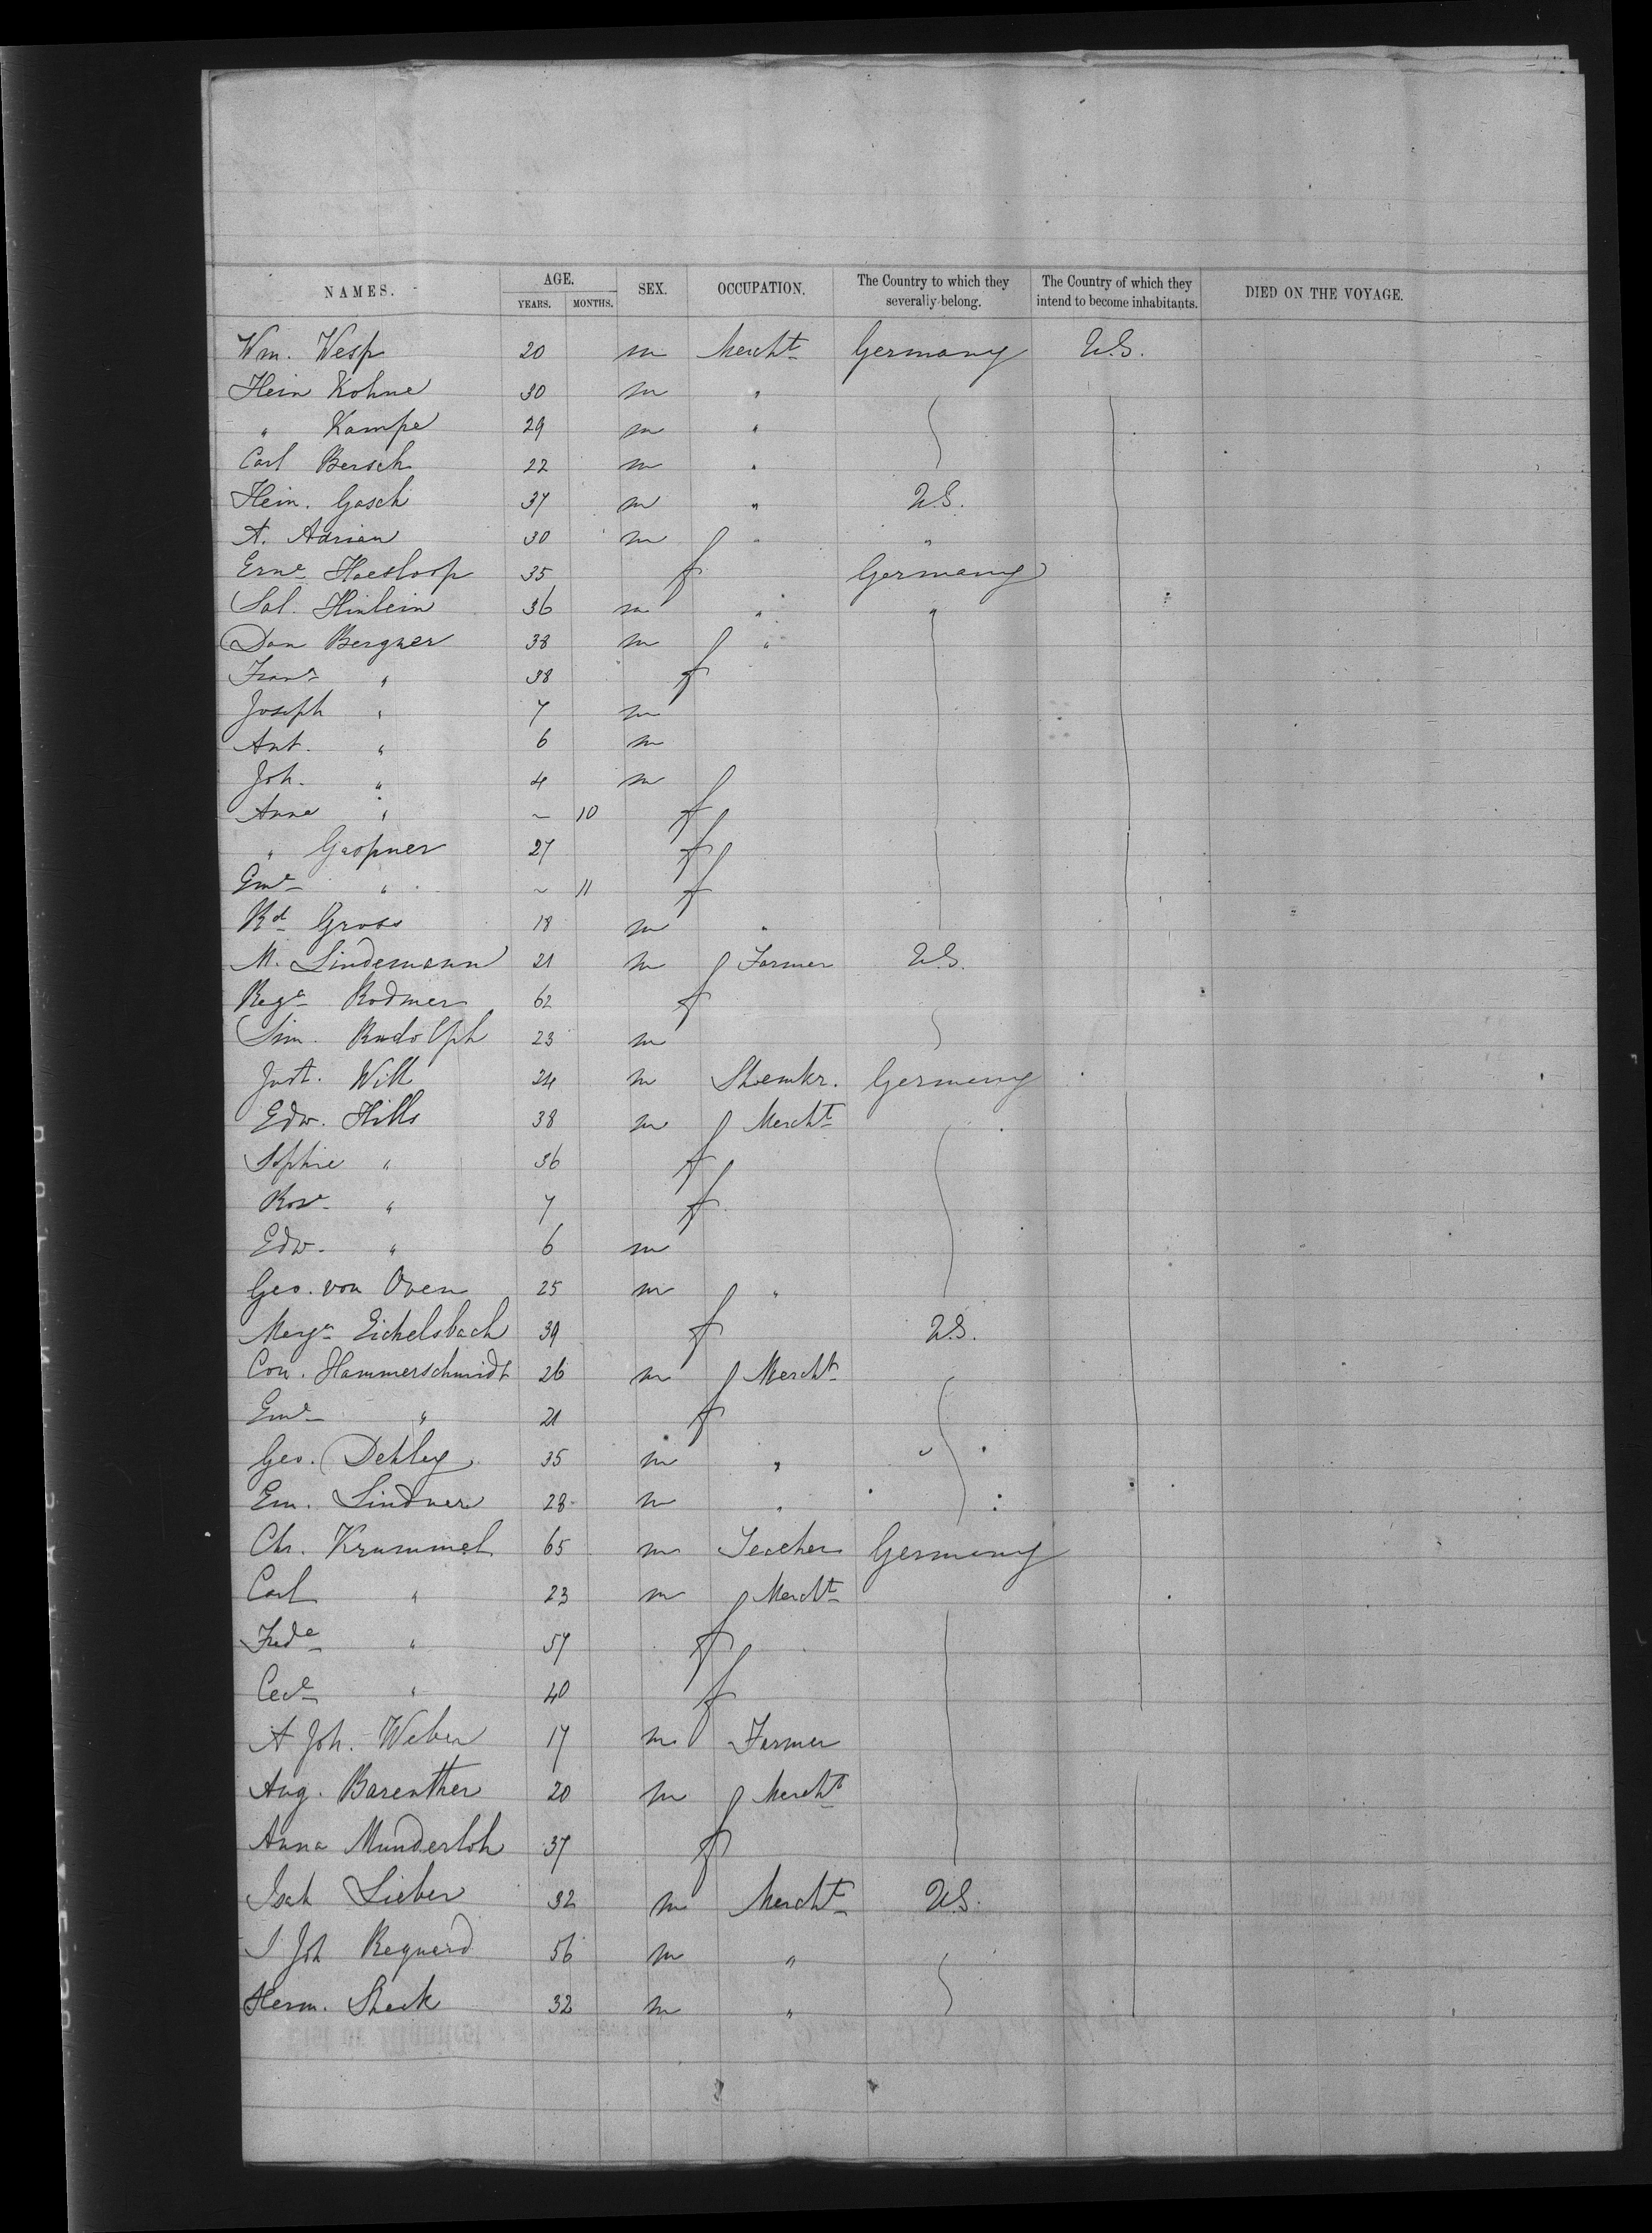 NAMES. AGE. SEX. OCCUPATION. The Country to which they severally belong. The Country of which they intend to become inhabitants. DIED ON THE VOYAGE.
YEARS. MONTHS.
Wm. Wesp 20 m Mercht Germany U.S.
Hein Kohne 30 m "
" Kampe 29 m "
Carl Bersch 22 m "
Hein. Gasch 37 m " U.S.
A. Adrian 30 m " "
Erne Haesloop 35 f Germany
Sal. Hinlein 36 m " "
Dan Bergner 38 m "
Franz " 38 f
Joseph " 7 m
Ant. " 6 m
Joh. " 4 m
Anna " ~ 10 f
" Gaspner 27 f
Eme " ~ 11 f
Rd Gross 18 m "
M. Lindemann 21 m Farmer U.S.
Rega Rodmer 62 f
Sim. Rudolph 23 m
Just. Will 24 m Shoemkr. Germany
Edw. Hills 38 m Mercht
Sophie " 36 f
Rose " 7 f
Edw. " 6 m
Geo. von Oven 25 m "
Marga Eichelsbach 39 f U.S.
Con. Hammerschmidt 26 m Mercht
Eme " 21 f
Geo. Dehley 35 m " "
Em. Lindner 28 m "
Chr. Krummel 65 m Teacher Germany
Carl " 23 m Mercht
Frede " 57 f
Cece " 40 f
A Joh. Weber 17 m Farmer
Aug. Barenther 20 m Mercht
Anna Munderloh 37 f
Isak Lieber 32 m Mercht U.S.
I Joh Requerd 56 m "
Herm. Sheek 32 m "